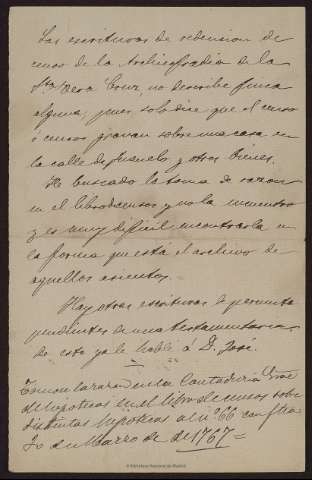 Las escrituras de redencion de
censo de la Archicofradia de la
Sta. Vera Cruz, no describe finca
alguna, pues solo dice que el censo
ó censos gravan sobre una casa en
la calle de Juanelo, y otros bienes.
He buscado la toma de razon
en el libro de censos y no la encuentro
y es muy dificil encontrarla en
la forma que está el archivo de
aquellos asientos.
Hay otras escrituras de permuta
pendientes de una testamentaria
de esto ya le hablé á D. José.
Tomon la razon en la Contaduria
de hipotecas en el libro de censos sobre
distintas hipotecas al nº 66 con fha
de Marzo de 1767=
Biblioteca Nacional de España